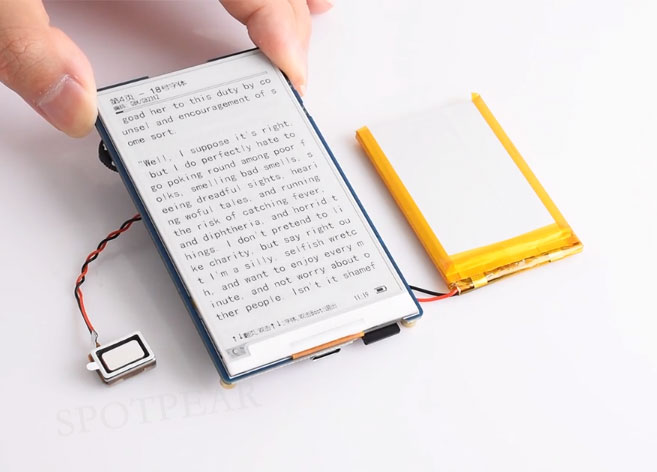 第4页 - 18号字体
goad her to this duty by co
unsel and encouragement of s
ome sort.
"Well, I suppose it's right,
but I do perfectly hate to
go poking round among poor f
olks, smelling bad smells, s
eeing dreadful sights, heari
ng woful tales, and running
the risk of catching fever,
and diphtheria, and horrid t
hings. I don't pretend to li
ke charity, but say right ou
t I'm a silly, selfish wretc
h, and want to enjoy every m
inute, and not worry about o
ther people. Isn't it shamef
11:19
SPOTPEAR